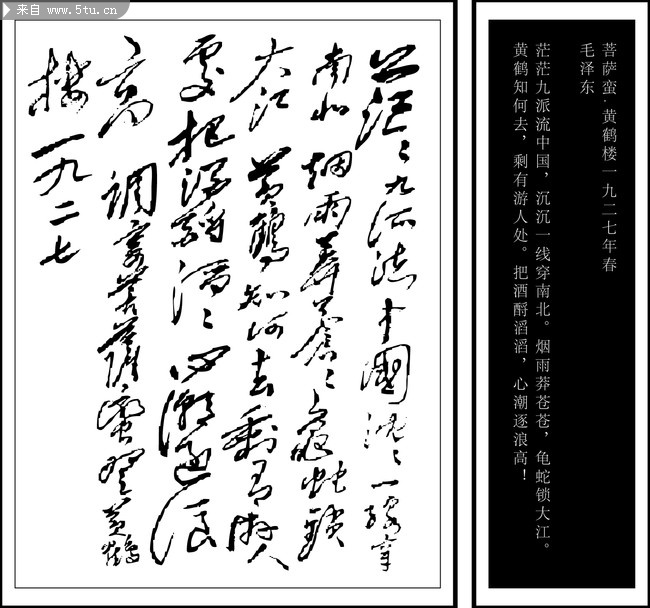 来自 www.5tu.cn
茫〻九派流中國沉〻一線穿
南北烟雨莽蒼〻龜蛇鎖
大江黄鶴知何去剩有游人
處把酒酹滔〻心潮逐浪
高調寄菩薩蠻登黄鶴
楼一九二七
菩萨蛮·黄鹤楼一九二七年春
毛泽东
茫茫九派流中国，沉沉一线穿南北。烟雨莽苍苍，龟蛇锁大江。
黄鹤知何去，剩有游人处。把酒酹滔滔，心潮逐浪高！